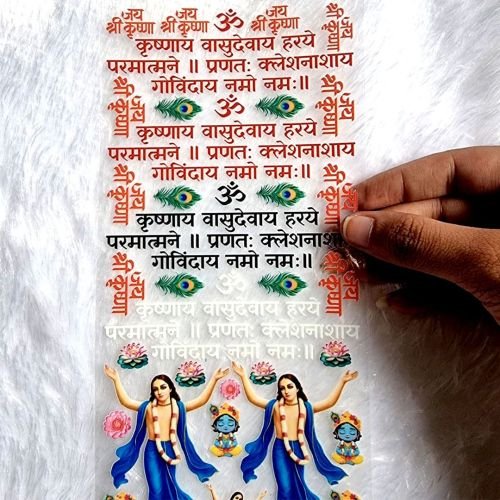 जय श्री कृष्णा जय श्री कृष्णा ॐ जय श्री कृष्णा जय श्री कृष्णा
कृष्णाय वासुदेवाय हरये
परमात्मने ॥ प्रणतः क्लेशनाशाय
गोविंदाय नमो नमः॥
जय श्री कृष्णा ॐ जय श्री कृष्णा
कृष्णाय वासुदेवाय हरये
परमात्मने ॥ प्रणतः क्लेशनाशाय
गोविंदाय नमो नमः॥
जय श्री कृष्णा ॐ जय श्री कृष्णा
कृष्णाय वासुदेवाय हरये
परमात्मने ॥ प्रणतः क्लेशनाशाय
गोविंदाय नमो नमः॥
जय श्री कृष्णा ॐ जय श्री कृष्णा
कृष्णाय वासुदेवाय हरये
परमात्मने ॥ प्रणतः क्लेशनाशाय
गोविंदाय नमो नमः॥